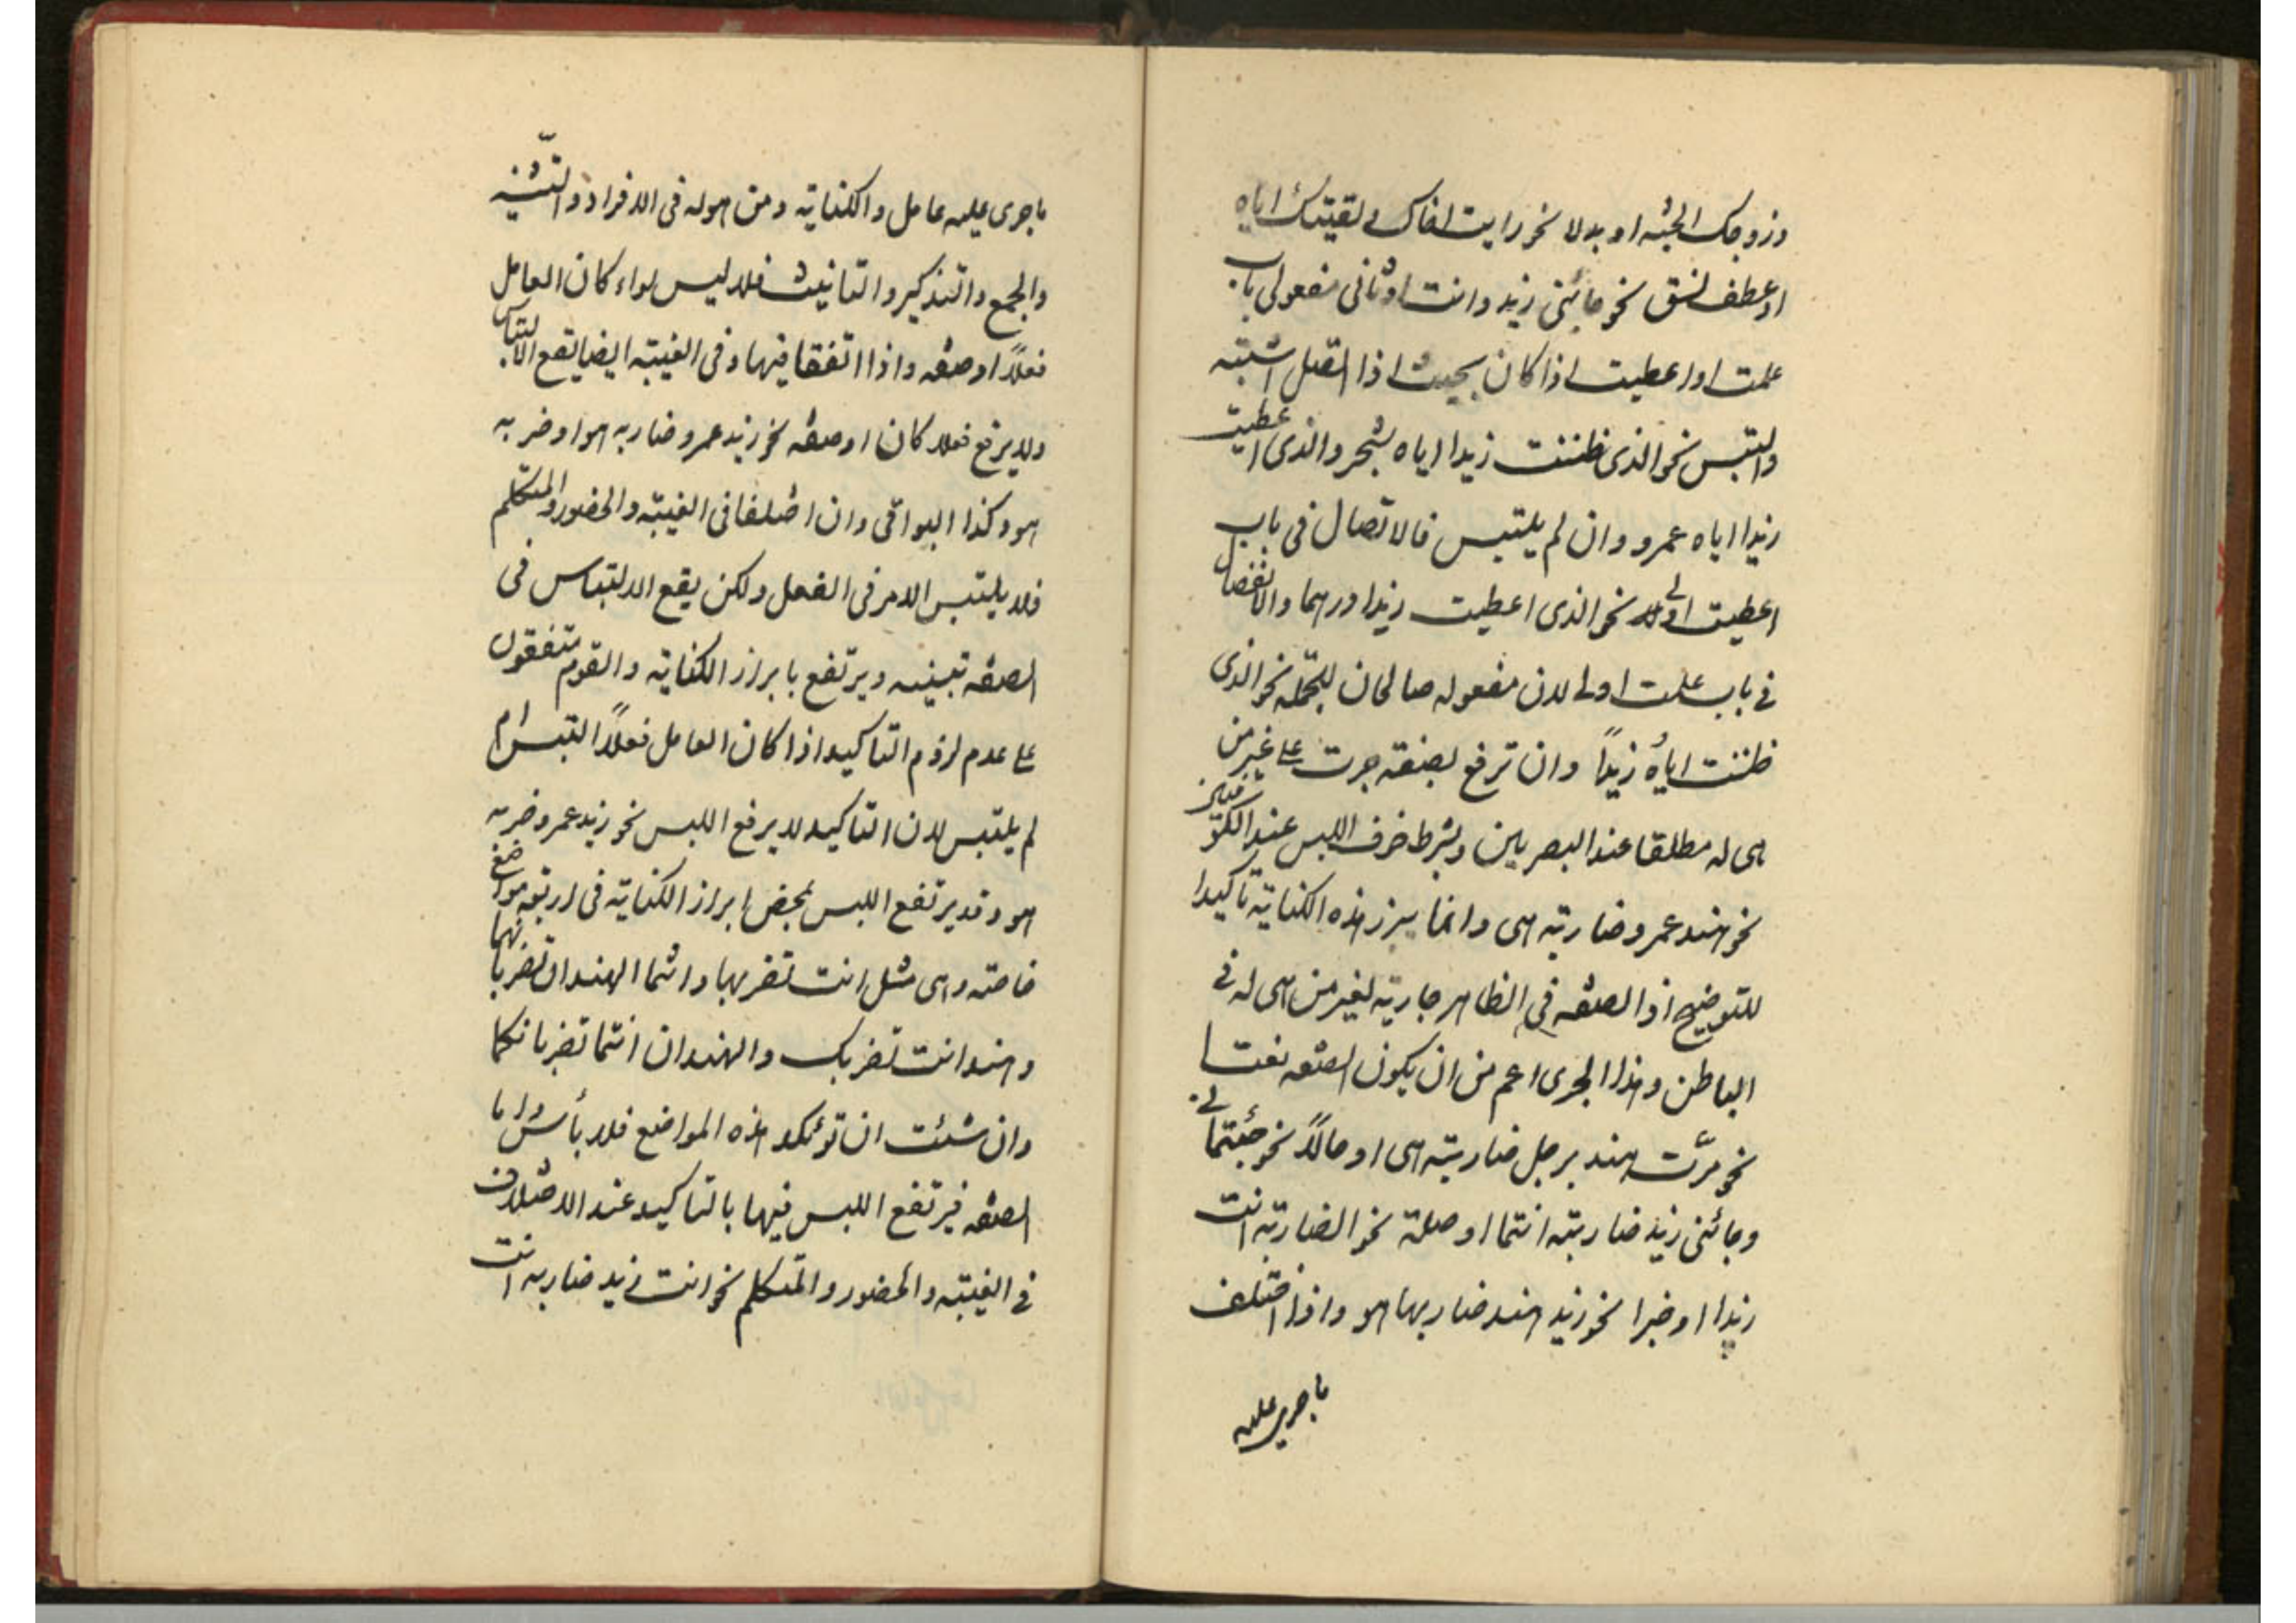 وزوجك الجنة او بدلا نحو رايت اخاك و لقيتك اياه
او عطف نسق نحو جائنى زيد وانت او ثانى مفعولى باب
علمت او اعطيت اذا كان بحيث اذا اتصل اشتبه
والتبس نحو الذى ظننت زيدا اياه بشجر والذى اعطيت
زيدا اياه عمرو وان لم يلتبس فالاتصال فى باب
اعطيت اولى نحو الذى اعطيت زيدا درهما والانفصال
فى باب علمت اولى لان مفعوله صالحان للجملة نحو الذى
ظننت اياه زيداً وان ترفع بصفة جرت على غير من
هى له مطلقا عند البصريين وبشرط خوف اللبس عند الكوفيين
نحو هند عمرو ضاربته هى وانما يبرز هذه الكناية تأكيدا
للتوضيح اذ الصفة فى الظاهر جارية لغير من هى له فى
الباطن وهذا الجرى اعم من ان يكون الصفة نعتا
نحو مرّت هند برجل ضاربته هى او حالاً نحو جئتما لى
وجائنى زيد ضاربته انتما او صلة نحو الضاربته انت
زيدا او خبرا نحو زيد هند ضاربها هو واذا اختلف
ما جرى عليه
ما جرى عليه عامل والكناية ومن هو له فى الافراد والتّثنيه
والجمع والتذكير والتانيث فلا ليس سواء كان العامل
فعلاً او صفة واذا اتفقا فيها وفى الغيبة ايضا يقع الالتباس
ولا يرفع فعلا كان او صفة نحو زيد عمرو ضاربه هو او ضربه
هو وكذا البواقى وان اختلفا فى الغيبة والحضور والمتكلم
فلا يلتبس الامر فى الفعل ولكن يقع الالتباس فى
الصفة تبينه ويرتفع بابراز الكناية والقوم متفقون
على عدم لزوم التاكيد اذا كان العامل فعلاً التبس ام
لم يلتبس لان التاكيد لا يرفع اللبس نحو زيد عمرو ضربه
هو وقد يرتفع اللبس بمحض ابراز الكناية فى اربعة مواضع
خاصة وهى مثل انت تضربها وانتما الهندان تضربانهما
وهند انت تضربك والهندان انتما تضربانكما
وان شئت ان تؤكد هذه المواضع فلا بأس واما
الصفة فيرتفع اللبس فيها بالتاكيد عند الاختلاف
فى الغيبة والحضور والتكلم نحو انت زيد ضاربه انت